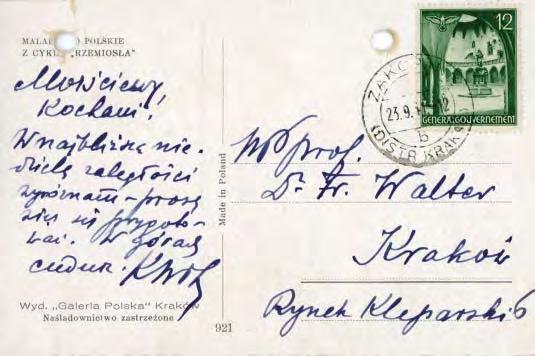 MALARSTWO POLSKIE
Z CYKLU „RZEMIOSŁA"
Mościewy
Kochani!
W najbliższą nie-
dzielę zaległości
wyrównam – proszę
się przygoto-
wać. W górach
cudnie.
Wyd. „Galerja Polska" Kraków
Naśladownictwo zastrzeżone
921
Made in Poland
12
GENERALGOUVERNEMENT
ZAKO
23.9.
12
b
(DISTR. KRAK
WP prof.
Dr. Fr. Walter
Kraków
Rynek Kleparski 6